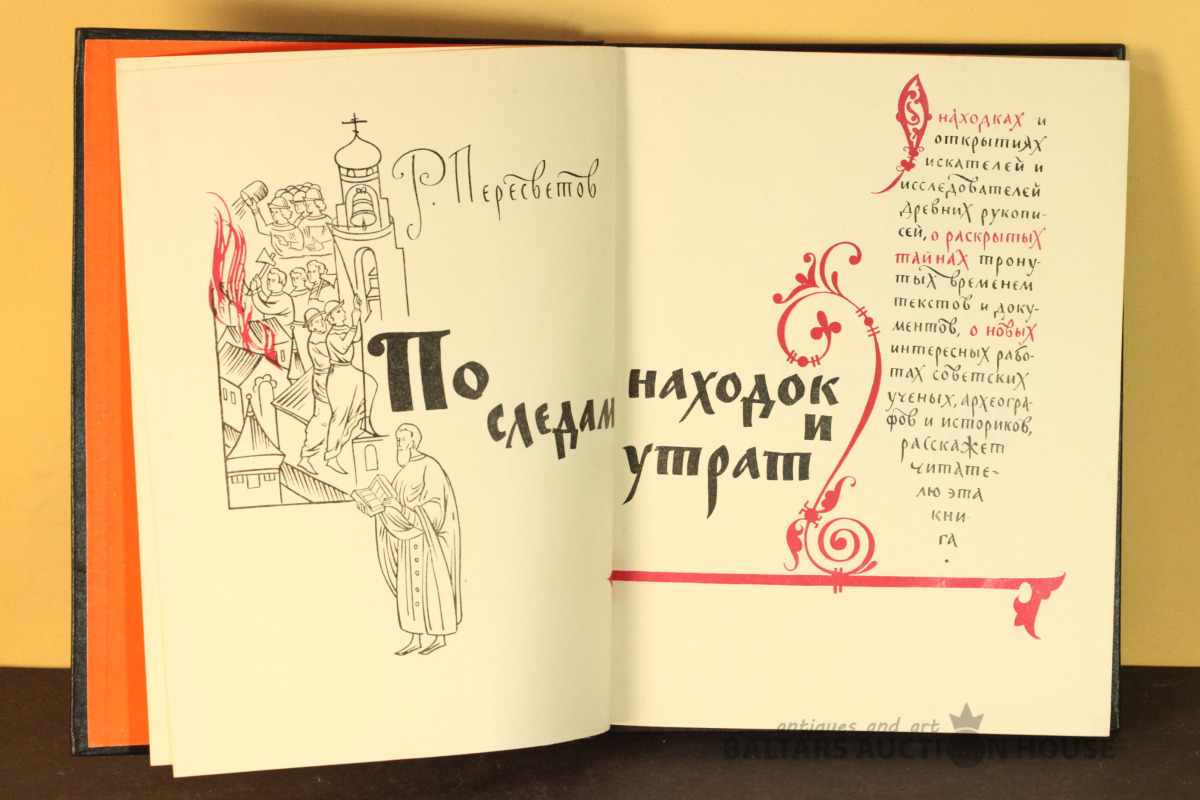 Р. Пересветов
По
следам
находок
и
утрат
О находках и
открытиях
искателей и
исследователей
древних рукопи-
сей, о раскрытых
тайнах трону-
тых временем
текстов и доку-
ментов, о новых
интересных рабо-
тах советских
ученых, археогра-
фов и историков,
расскажет
читате-
лю эта
кни-
га
.
antiques and art
BALTARS AUCTION HOUSE